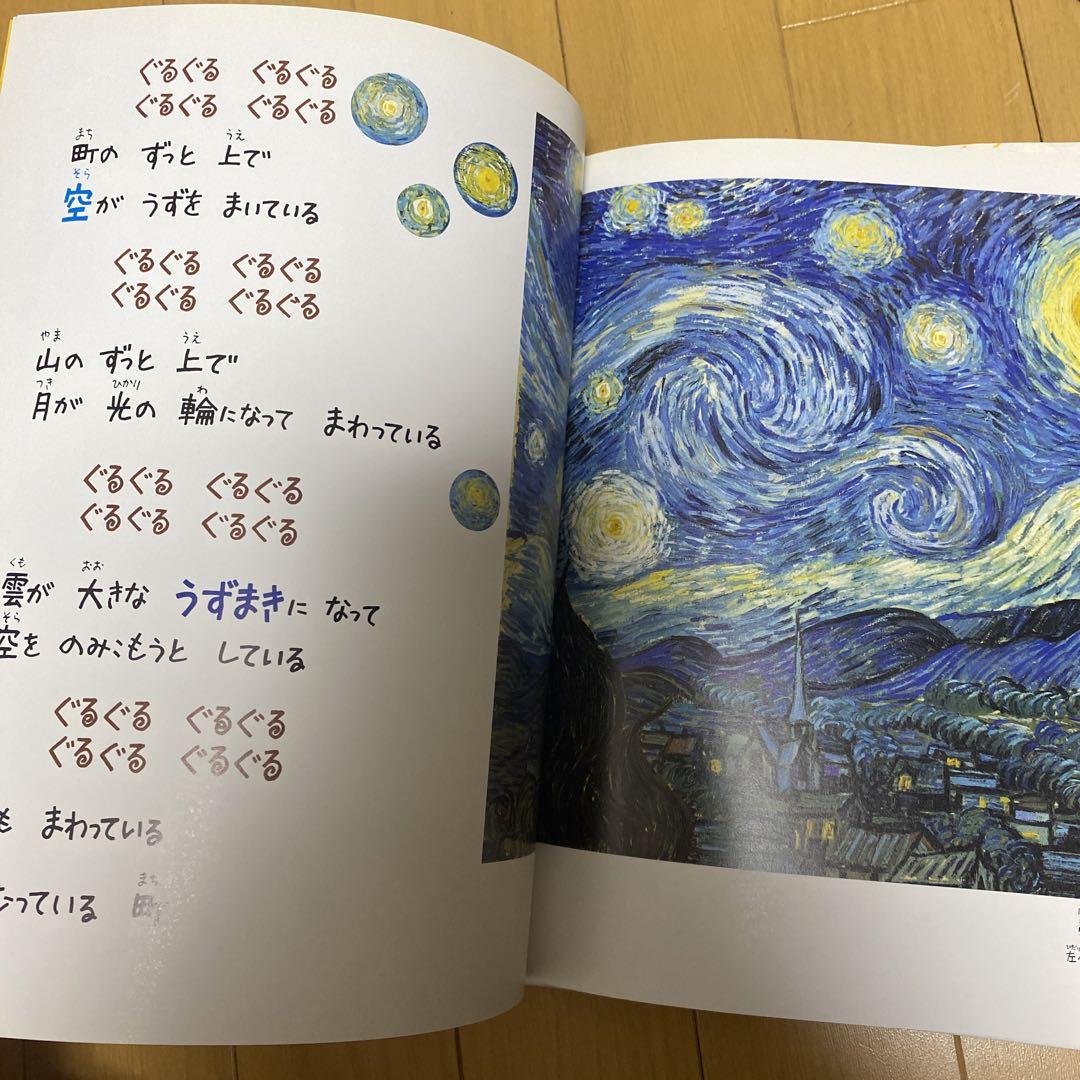 ぐるぐる ぐるぐる
ぐるぐる ぐるぐる
町の ずっと 上で
空が うずを まいている
ぐるぐる ぐるぐる
ぐるぐる ぐるぐる
山の ずっと 上で
月が 光の 輪になって まわっている
ぐるぐる ぐるぐる
ぐるぐる ぐるぐる
雲が 大きな うずまきに なって
空を のみこもうと している
ぐるぐる ぐるぐる
ぐるぐる ぐるぐる
も まわっている
なっている 町
左